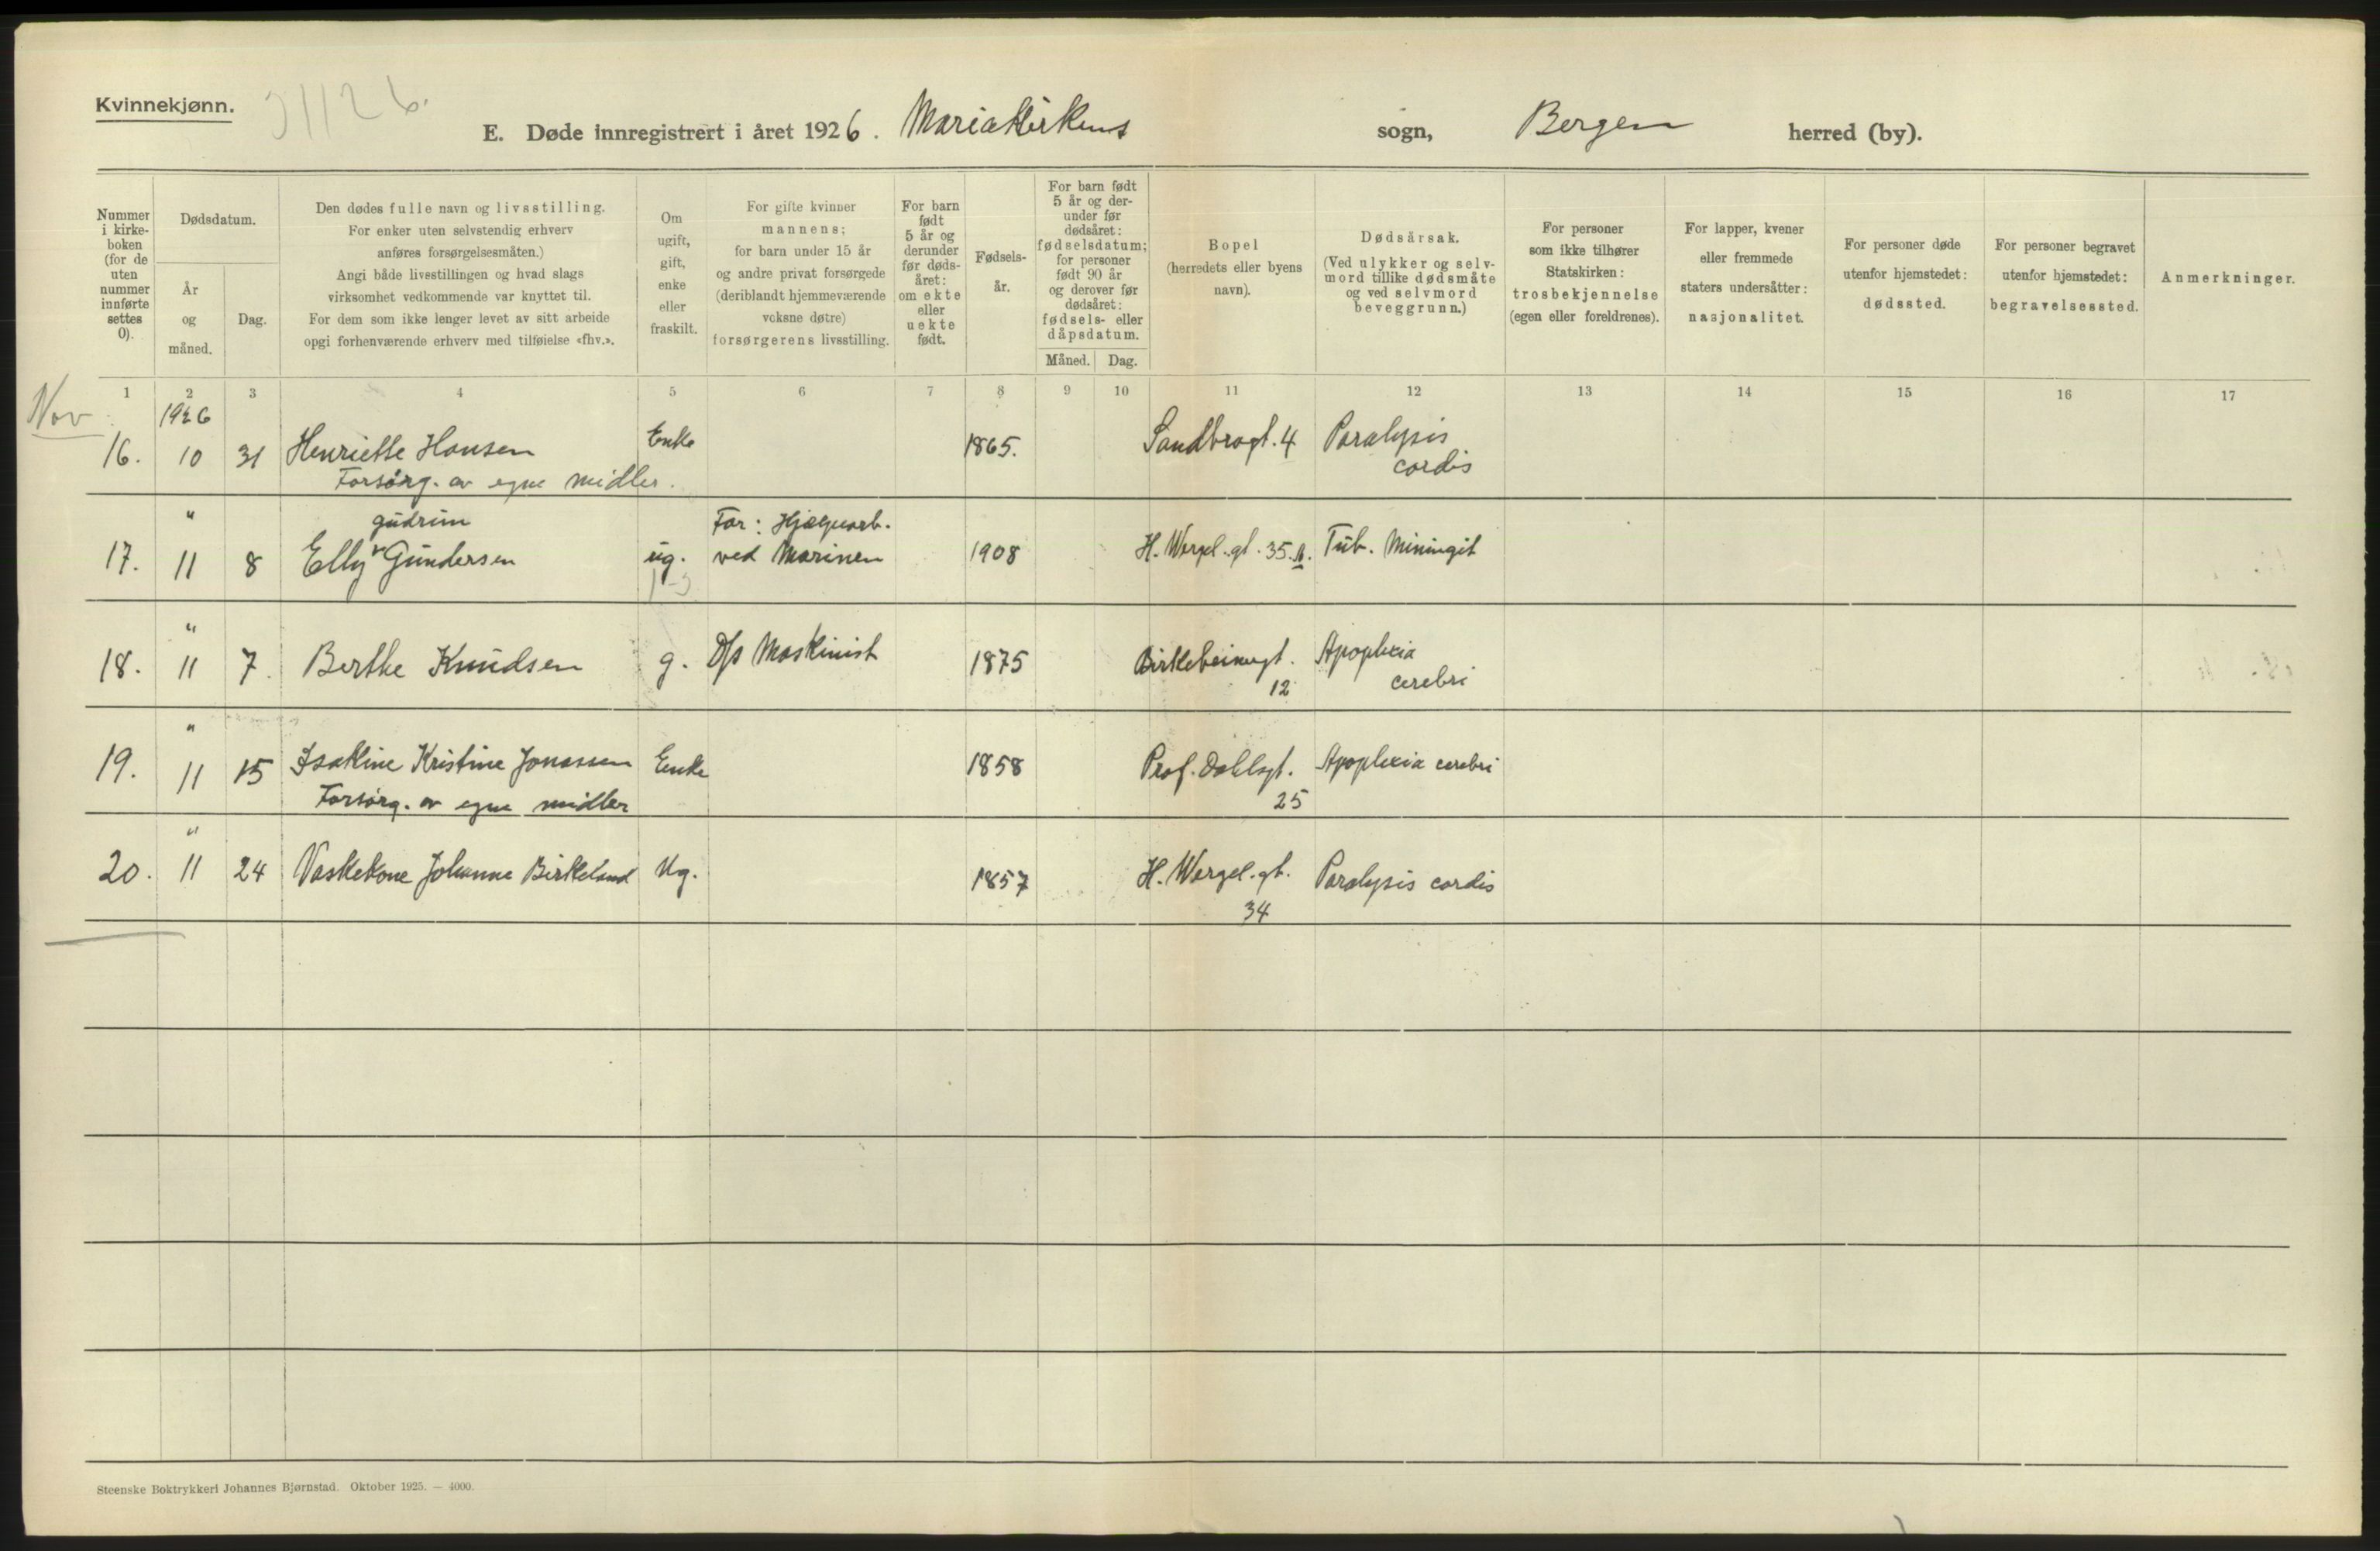 Kvinnekjønn.
E. Døde innregistrert i året 1926. Mariakirkens sogn, Bergen herred (by).
Nummer i kirke-boken (for de uten nummer innførte settes 0).
Dødsdatum.
År og måned.
Dag.
Den dødes fulle navn og livsstilling.
For enker uten selvstendig erhverv
anføres forsørgelsesmåten.)
Angi både livsstillingen og hvad slags
virksomhet vedkommende var knyttet til.
For dem som ikke lenger levet av sitt arbeide
opgi forhenværende erhverv med tilføielse «fhv.».
Om ugift, gift, enke eller fraskilt.
For gifte kvinner
mannens;
for barn under 15 år
og andre privat forsørgede
(deriblandt hjemmeværende
voksne døtre)
forsørgerens livsstilling.
For barn født 5 år og derunder før døds-året: om ekte eller uekte født.
Fødsels-år.
For barn født 5 år og der-under før dødsåret: fødselsdatum; for personer født 90 år og derover før dødsåret: fødsels- eller dåpsdatum.
Måned. Dag.
Bopel
(herredets eller byens
navn).
Dødsårsak.
(Ved ulykker og selv-
mord tillike dødsmåte
og ved selvmord
beveggrunn.)
For personer
som ikke tilhører
Statskirken:
trosbekjennelse
(egen eller foreldrenes).
For lapper, kvener
eller fremmede
staters undersåtter:
nasjonalitet.
For personer døde
utenfor hjemstedet:
dødssted.
For personer begravet
utenfor hjemstedet:
begravelsessted.
Anmerkninger.
1 2 3 4 5 6 7 8 9 10 11 12 13 14 15 16 17
Nov
1926
16. 10 31 Henriette Hansen Enke 1865. Sandbrogt. 4 Paralysis
cordis
Forsørg. av egne midler.
" Gudrun Far:
17. 11 8 Elly Gundersen ug. ved Marinen 1908 H. Wergel. gt. 35. Tub. Miningit
"
18. 11 7. Berthe Knudsen g. D/s Maskinist 1875 Birkebeinergt. Apoplexia
12 cerebri
"
19. 11 15 Isakine Kristine Jonassen Enke 1858 Prof. Dahlsgt. Apoplexia cerebri
Forsørg. av egne midler 25
"
20. 11 24 Vaskekone Johanne Birkeland Ug. 1857 H. Wergel. gt. Paralysis cordis
34
Steenske Boktrykkeri Johannes Bjørnstad. Oktober 1925. — 4000.